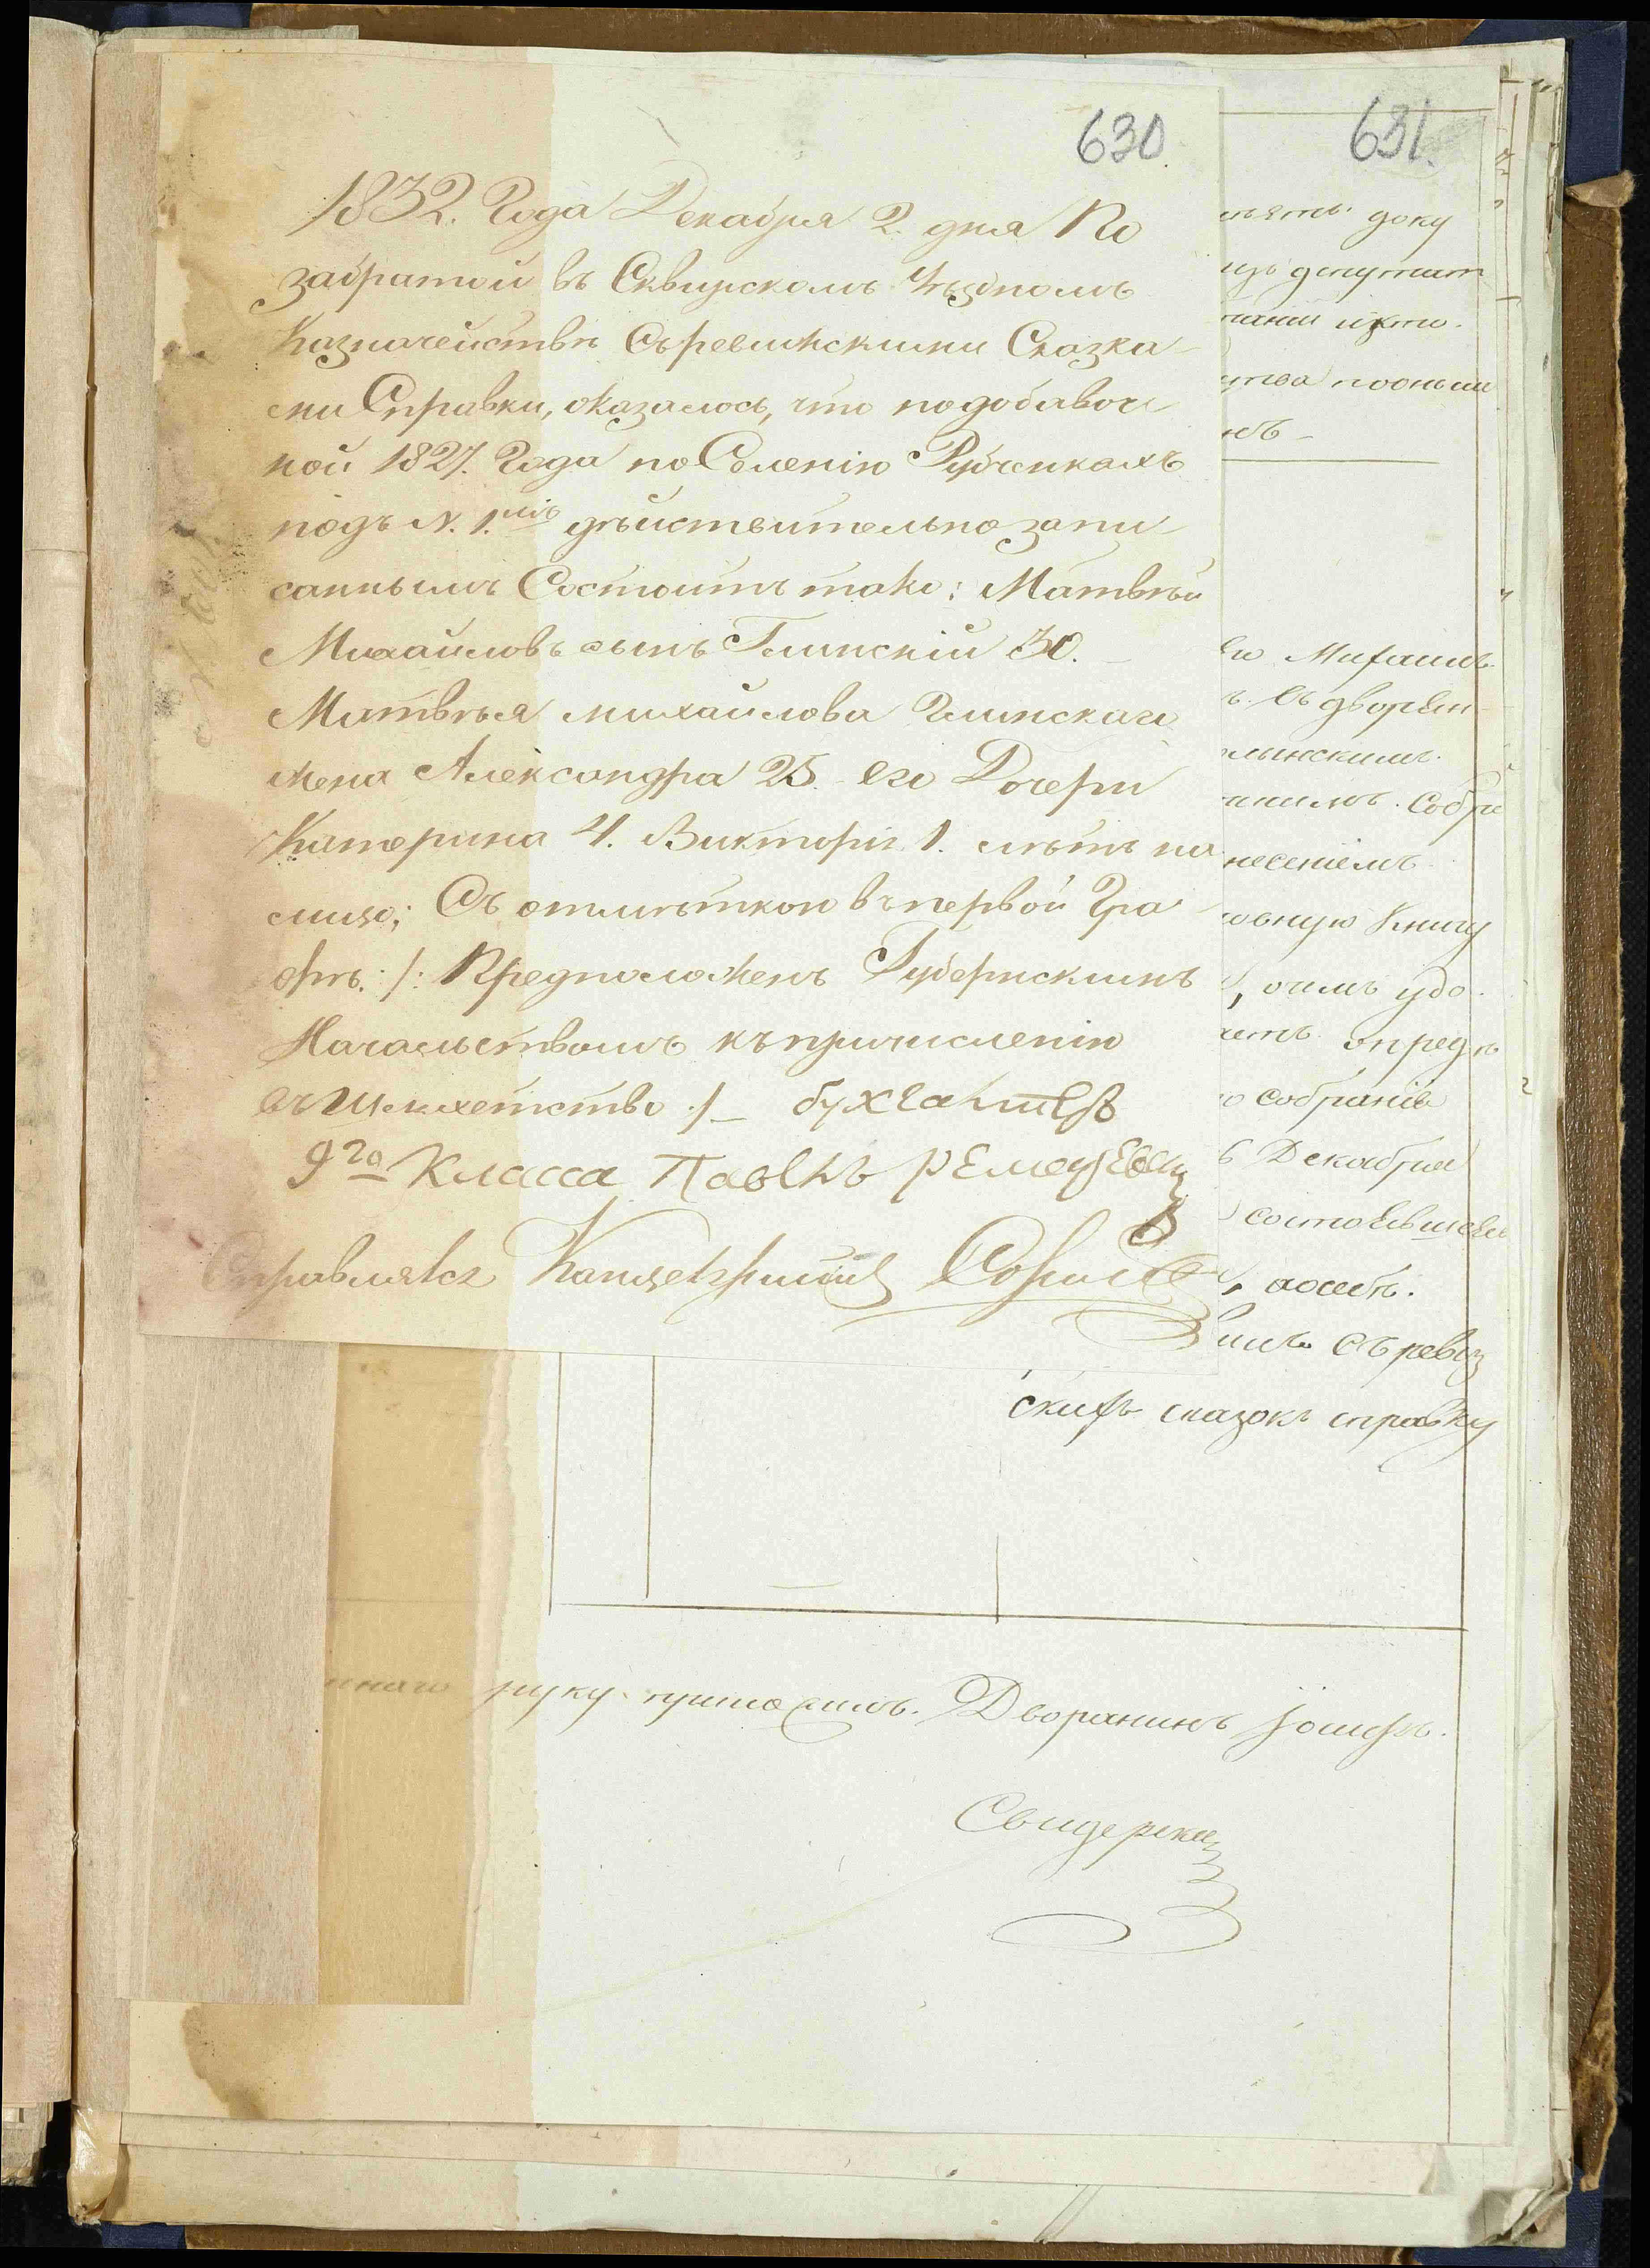 630
1832. Года Декабря 2. дня По
забратой въ Сквирскомъ Уѣздномъ
Казначействѣ Съ ревизскими Сказка-
ми Справки, оказалось, что по добавоч
ной 1827. Года по Селенію Рубченкахъ
подъ N. 1.мъ дѣйствительно запи-
саннымъ Состоитъ тако: Матвѣй
Михайловъ сынъ Глинскій 30.
Матвѣя михайлова Глинскаго
жена Александра 25. его Дочери
Катерина 4. Викторія 1. лѣтъ на
лицо; Съ отмѣткою въ первой Гра-
фѣ: /: Предположенъ Губернскимъ
Начальствомъ къ причисленію
въ Шляхетство :/ — бухгалтеръ
9го Класса Павелъ
Справлялся Канцеляристъ
631.
доку
депутат
ства
Михаилъ
съ дворян
Собра
несеніемъ
Книгу
, оимъ удо
опредѣ
собраніе
Декабря
состоявшеся
, аосебѣ.
съ ревиз
скихъ сказокъ справку
руку приложилъ. Дворянинъ Іосифъ.
Свидерскій